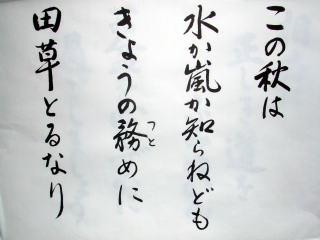 この秋は
水か嵐か知らねども
きょうの務めに
つと
田草とるなり